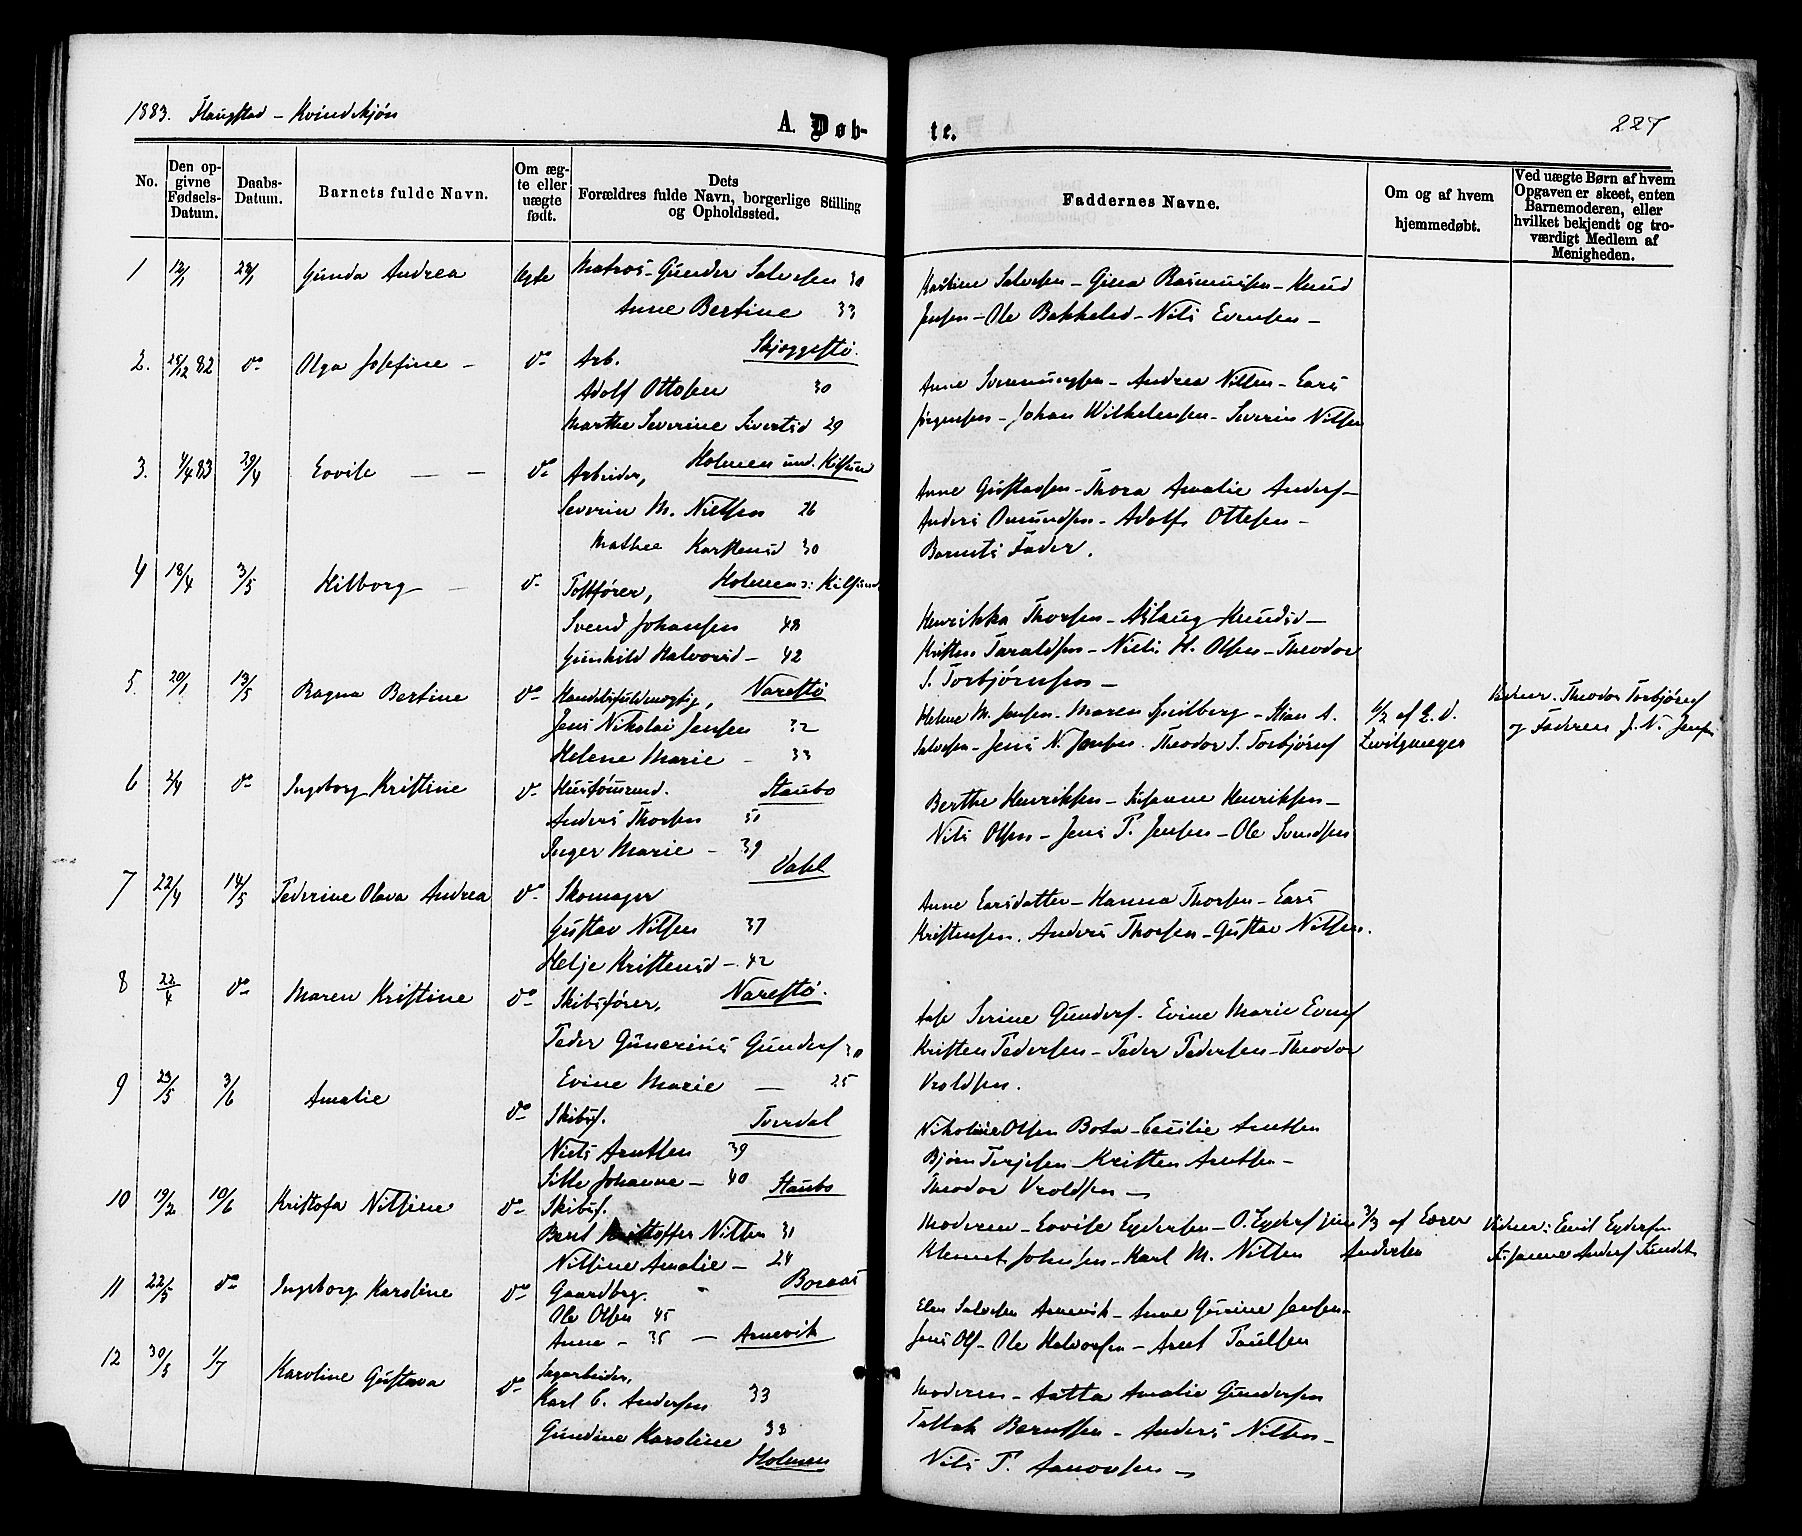 1883. Flangstad - Kvindekjøn
A. Døb-
te.
227
No.
Den op-
givne
Fødsels-
Datum.
Daabs-
Datum.
Barnets fulde Navn.
Om æg-
te eller
uægte
født.
Dets
Forældres fulde Navn, borgerlige Stilling
og Opholdssted.
Faddernes Navne.
Om og af hvem
hjemmedøbt.
Ved uægte Børn af hvem
Opgaven er skeet, enten
Barnemoderen, eller
hvilket bekjendt og tro-
værdigt Medlem af
Menigheden.
1 12/1 Gunda Andrea Ægte Matros - Gunder Salvesen 30
Anne Bertine 33
Skjeggestø.
Salvesen - Gina Rasmussen - Knud
Jensen - Ole Bakkelid - Nils Evensen -
2. 25/12 82 do Olga Josefine - do Arb.
Adolf Ottosen 30
Marthe Severine Sivertsd 29
Holmen und. Kilsund
Anne - Andrea Nilsen - Lars
Jørgensen - Johan Wilhelmsen - Severin Nilsen
3. 4/4 83 29/4 Lovise - - do Arbeider,
Severin M. Nielsen 26
Mathee Karstensd 30
Holmen: Kilsund
Anne Gustavsen - Thora Amalie Anders -
Anders Omundsen - Adolf Ottesen -
Barnets Fader.
4 18/4 3/5 Hilborg - do
Svend Johansen 48
Gunhild Halvorsd - 42
Narestø
Henrikka Thorsen - Aslaug Knudsd -
Kristen Taraldsen - Niels H. Olsen - Theodor
S. Torbjørnsen -
5. 20/1 13/5 Ragna Bertine do Handelsfuldmægtig,
Jens Nikolai Jensen 32
Helene Marie - 33
Staubo
Helene M. Jensen - Maren Spilberg - Stian A.
Salvesen - Jens N. Jensen. Theodor S. Torbjørns
af E. V.
Theodor Torbjørns
og Faderen J. N. Jens
6 2/4 do Ingeborg Kristine do Husfømand.
Anders Thorsen 51
Inger Marie - 39
Vahl
Berthe Henriksen - Susanne Henriksen -
Nils Olsen - Jens T. Jensen - Ole Svendsen
7 22/4 14/5 Pederine Olava Andrea do Skomager
Gustav Nilsen 37
Helje Kristensd - 42
Narestø.
Anne Larsdatter - Hanna Thorsen - Lars
Kristensen. Anders Thorsen - Gustav Nilsen.
8 22/4 do Maren Kristine do Skibsfører,
Peder Gunerius Gunders 30
Evine Marie - 25
Tverdal
Aase Serine Gunders. Evine Marie Evens
Kristen Pedersen - Peder Pedersen - Theodor
Vroldsen.
9 23/5 3/6 Amalie do Skibsf.
Niels Arntsen 39
Sille Johanne - 40
Staubo
Nikoline Olsen Bota - Cecilie Arntsen
Bjørn Terjesen - Kristen Arntsen -
Theodor Vroldsen -
10 19/2 10/6 Kristofa Nilsine do Skibsf.
Bent Kristoffer Nilsen 31
Nilsine Amalie - 24
Boraas
Moderen - Lovise Eydersen - O. Eyders
Klemet Johnsen - Karl M. Nilsen
3/3 af Lærer
Andersen
Emil Eydersen
Susanne Anders
11 22/5 do Ingeborg Karoline do Gaardbrg.
Ole Olsen 45
Anne - 35 - Arnevik
Elen Salvesen Arnevik - Anne Gurine Jensen -
Jens Ols - Ole Halvorsen - Arnt Paulsen
12 30/5 1/7 Karoline Gustava do Sagarbeider,
Karl C. Andersen 33
Gundine Karoline 33
Holmen
Moderen - Aatta Amalie Gundersen
Tallak Berntsen - Anders Nilsen -
Nils T. Aanonsen -